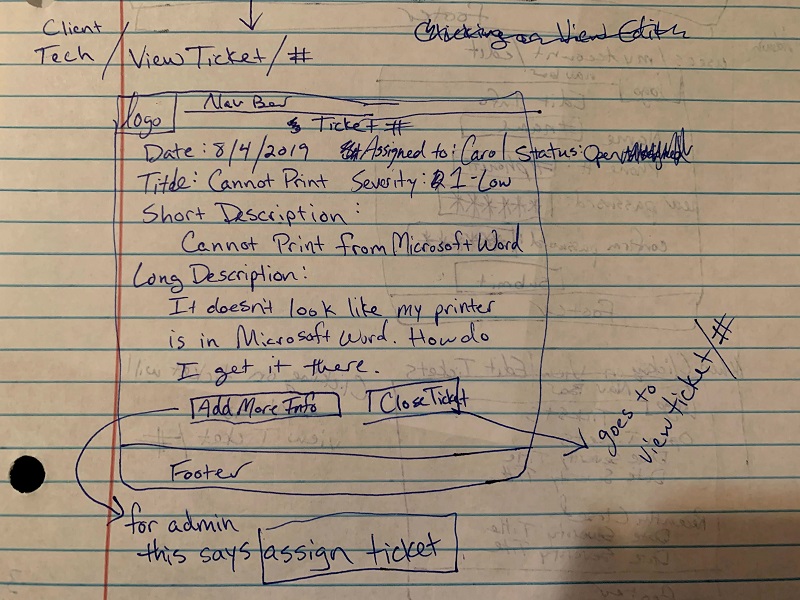 Client
Tech / View Ticket / #
Clicking on View Edit
logo
Nav Bar
Ticket #
Date: 8/4/2019 Assigned to: Carol Status: Open
Title: Cannot Print Severity: 1-Low
Short Description:
Cannot Print from Microsoft Word
Long Description:
It doesn't look like my printer
is in Microsoft Word. How do
I get it there.
Add More Info Close Ticket
goes to
view ticket/#
Footer
for admin
this says assign ticket